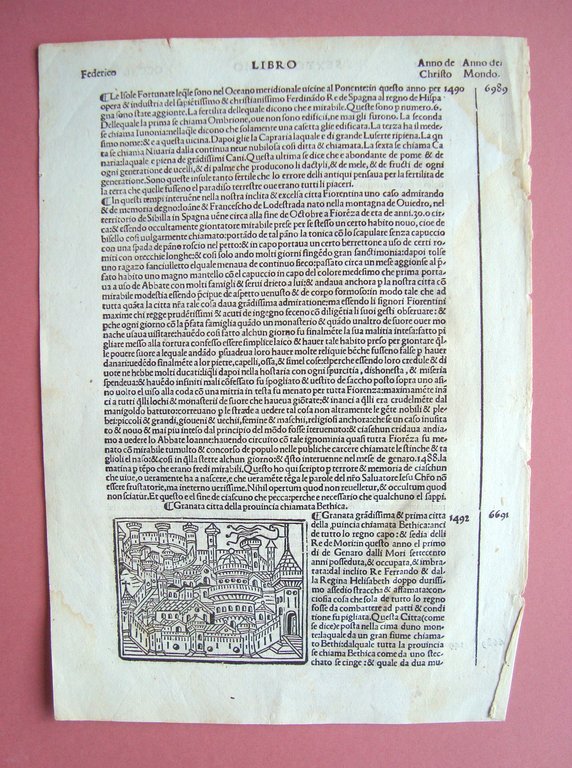 LIBRO
Federico
Anno de Christo
Anno del Mondo.
¶Le Isole Fortunate leq̃le sono nel Oceano meridionale uicine al Ponente:in questo anno per 1490 6989
opera & industria del sapiẽtissimo & christianissimo Ferdinãdo Re de Spagna al regno de Hispa
gna sono state aggionte. La fertilita delle quale dicono che e mirabile. Queste sono p numero.6.
Delle quale la prima se chiama Ombrione, oue non sono edificii, ne mai gli furono. La seconda
se chiama Iunonia:nella q̃le dicono che solamente una casetta gli e edificata. La terza ha il mede-
simo nome:& e a questa uicina. Dapoi gli e la Capraria laquale e di grande Luserte ripiena. La q̃n
ta se chiama Niuaria dalla continua neue nubilosa cosi ditta & chiamata. La sexta se chiama Ca
naria:laquale e piena de grãdissimi Cani. Questa ultima se dice che e abondante de pome & de
ogni generatione de ucelli, & di palme che producono li dactyli, & de mele, & de fructi de ogni
generatione. Sono queste insule tanto fertile che lo errore delli antiqui pensaua per la fertilita de
la terra che quelle fusseno el paradiso terrestro oue erano tutti li piaceri.
¶In questi tempi interuẽne nella nostra inclita & excelsa citta Fiorentina uno caso admirando
& de memoria degno:Ioane & Francescho de Lodestrada nato nella montagna de Ouiedro, nel
territorio de Sibilla in Spagna uẽne circa alla fine de Octobre a Fiorẽza de eta de anni.30.o cir-
ca:& essendo occultamente giontatore mirabile prese per se stesso un certo habito nouo, cioe de
bisello cosi uulgarmente chiamato:portãdo de tal pãno la tonica cõ lo scapulare senza capuccio
con una spada de pãno roscio nel petto:& in capo portaua un certo berrettone a uso de certi ro-
miti con orecchie longhe:& cosi solo ando molti giorni fingẽdo gran sanctimonia:dapoi tolse
uno ragazo fanciulletto el quale menaua de continuo sieco:passato circa un mese aggionse al p̃
fato habito uno magno mantello cõ el capuccio in capo del colore medesimo che prima porta-
ua a uso de Abbate con molti famigli & serui drieto a lui:& andaua anchora p la nostra citta cõ
mirabile modestia essendo p̃cipue de aspetto uenusto & de corpo formoso:in modo tale che ad
tutta quãta la citta nr̃a tale cosa daua grãdissima admiratione:ma essendo li signori Fiorentini
maxime ch̃i regge prudẽtissimi & acuti de ing:gno feceno cõ diligẽtia li suoi gesti obseruare:&
p che ogni giorno cõ la p̃fata famiglia quãdo un monasterio & quãdo unaltro de suore ouer mo
nache usaua uisitare:hauẽdo cosi fatto alchun giorno fu finalmẽte la sua malitia intesa:fatto pi
gliare messo alla tortura confesso essere simplice laico & hauer tale habito preso per giontare q̃l-
le pouere suore a lequale andãdo psuadeua loro hauer molte reliquie bẽche fusseno false p hauer
danari:uedẽdo finalmẽte a lor pietre, capelli, ossa, & simel cose:el perche essendo loro credule & di
uote ne hebbe molti ducati:liq̃li dapoi nella hostaria con ogni spurcitia, dishonesta, & miseria
spendeua:& hauẽdo infiniti mali cõfessato fu spogliato & uestito de saccho posto sopra uno asi-
no uolto el uiso alla coda cõ una mitria in testa fu menato per tutta Fiorenza:maximamẽte inã
ci a tutti q̃lli lochi & monasterii de suore che haueua giõtate:& inanci a q̃lli era crudelmẽte dal
manigoldo battuto:correuano p le strade a uedere tal cosa non altramente le gẽte nobili & ple-
bei:piccoli & grandi, giouẽni & uechii, femine & maschi, religiosi anchora:che se un caso inusita
to & nouo & mai piu inteso dal principio del mõdo fosse interuenuto:& ciaschun cridaua andia
mo a uedere lo Abbate Ioanne:hauendo circuito cõ tale ignominia quasi tutta Fiorẽza fu me
nato cõ mirabile tumulto & concorso de populo nelle publiche carcere chiamate le stinche & ta
glioli el naso:& cosi in q̃lla stette alchun giorno:& q̃sto interuenne nel mese de genaro.1488.la
matina p tẽpo che erano fredi mirabili. Questo ho qui scripto p terrore & memoria de ciaschun
che uiue, o ueramente ha a nascere, e che uerametẽ tẽga le parole del nr̃o Saluatore Iesu Chr̃o nõ
essere frustatorie, ma in eterno uerissime. Nihil opertum quod non reueletur, & occultum quod
non sciatur. Et questo e el fine de ciascuno che pecca:perche e necessario che qualchuno el sappi.
¶Granata citta della prouincia chiamata Bethica.
¶Granata grãdissima & prima citta 1492 6691
della ,puincia chiamata Bethica:anci
de tutto lo regno capo:& sedia delli
Re de Mori:in questo anno el primo
di de Genaro dalli Mori settecento
anni posseduta, & occupata, & imbra-
tata:dal inclito Re Ferrando & dal-
la Regina Helisabeth doppo durissi-
mo assedio straccha & affamata:con-
ciosia cosa che sola de tutto lo regno
fosse da combattere ad patti & condi
tione fu pigliata. Questa Citta(come
se dice)e posta nella cima duno mon-
te:laquale da un gran fiume chiama-
to Bethi:dalquale tutta la prouincia
se chiama Bethica come da uno stec-
chato se cinge:& quale da dua mu-